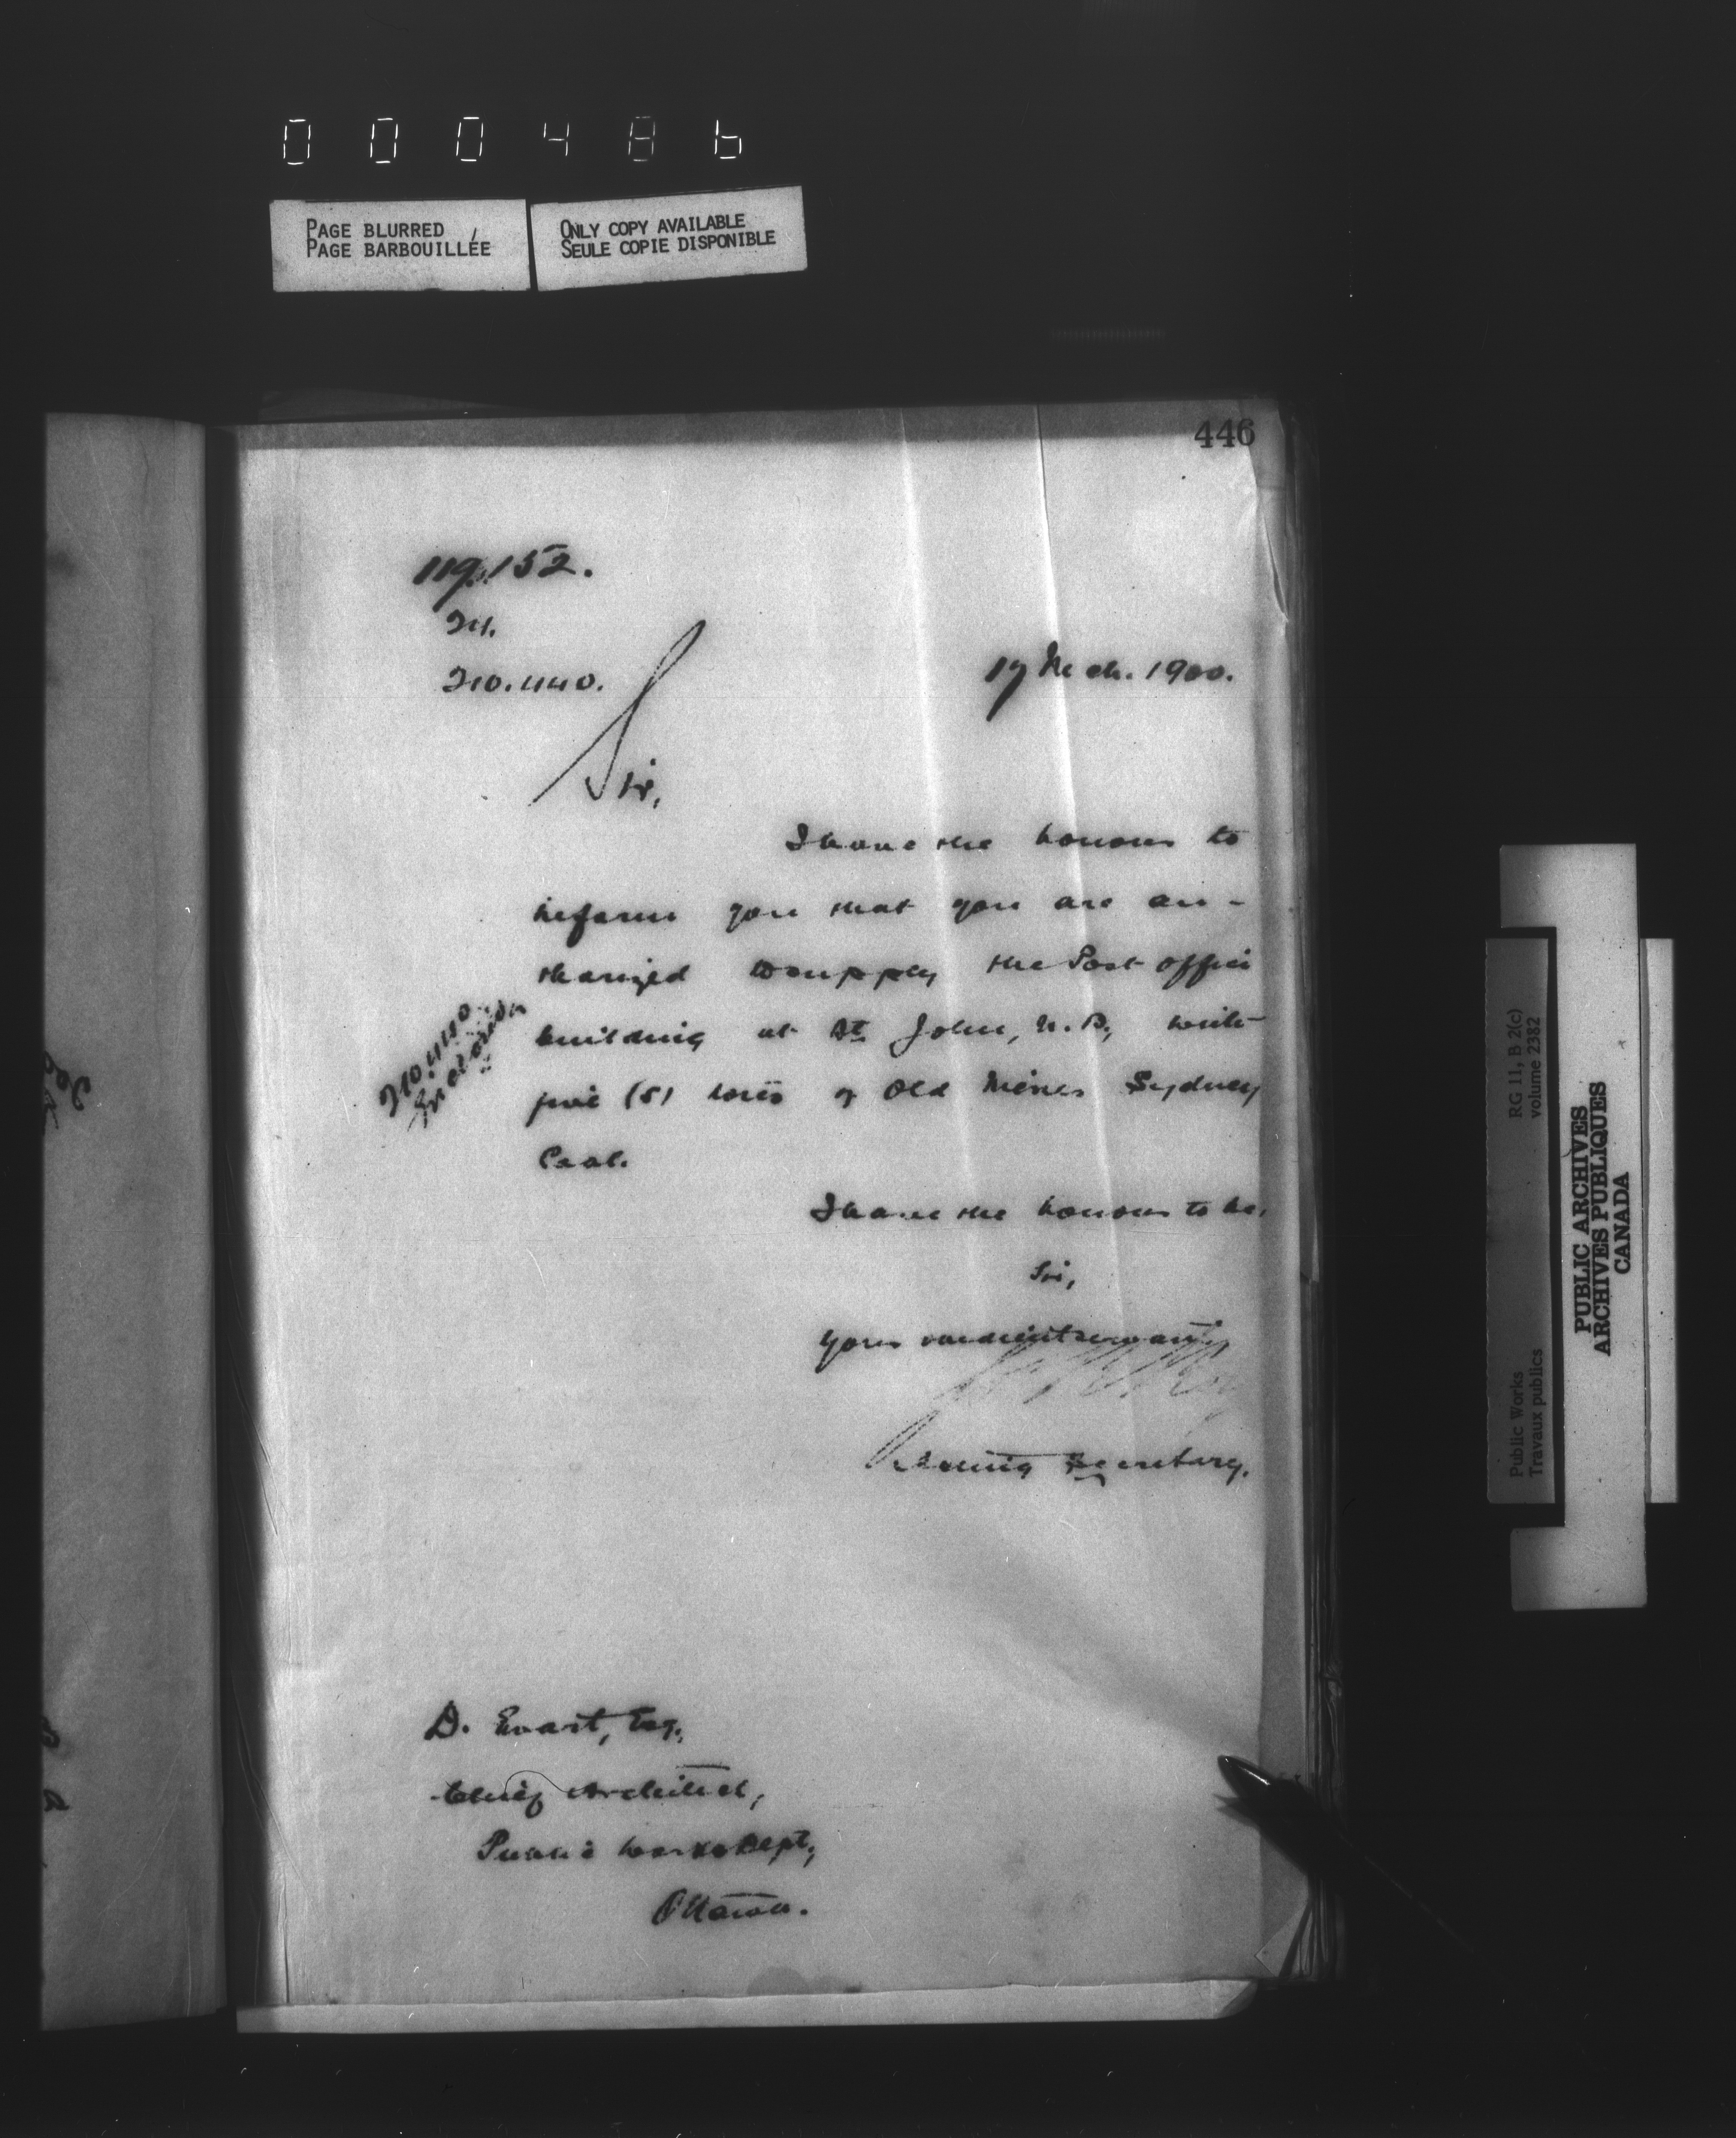 000486
PAGE BLURRED
PAGE BARBOUILLÉE
ONLY COPY AVAILABLE
SEULE COPIE DISPONIBLE
446
119.152.
210.440.
17 Mch. 1900.
Sir,
I have the honour to
inform you that you are au-
thorized to supply the Post office
building at St John, N.B., with
five (5) tons of Old Mines Sydney
Coal.
210.440
I have the honour to be,
Sir,
Your obedient servant,
Acting Secretary.
D. Ewart, Esq.,
Chief Architect,
Public Works Dept.,
Ottawa.
RG 11, B 2(c)
volume 2382
Public Works
Travaux publics
PUBLIC ARCHIVES
ARCHIVES PUBLIQUES
CANADA